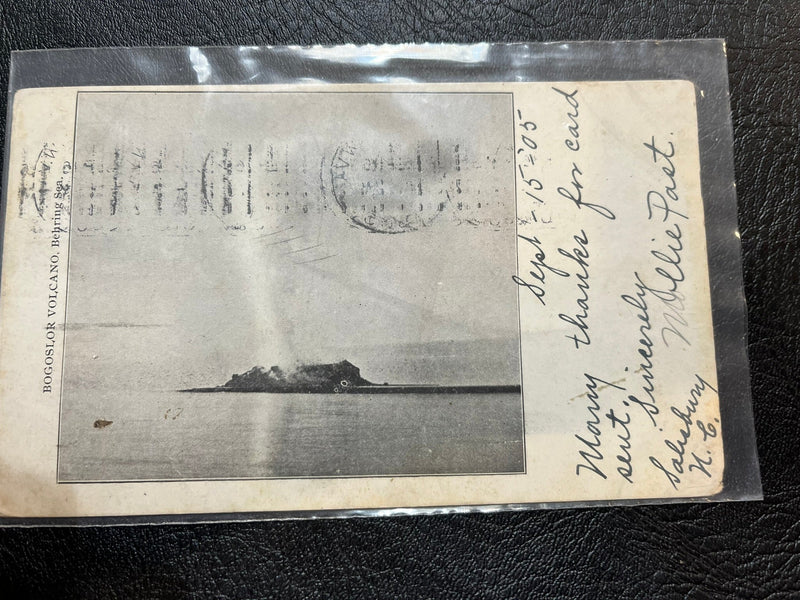 BOGOSLOR VOLCANO, Behring Sea.
Sept - 15 - '05
Many thanks for card
sent.
Sincerely
Mollie Past.
Salisbury
N. C.